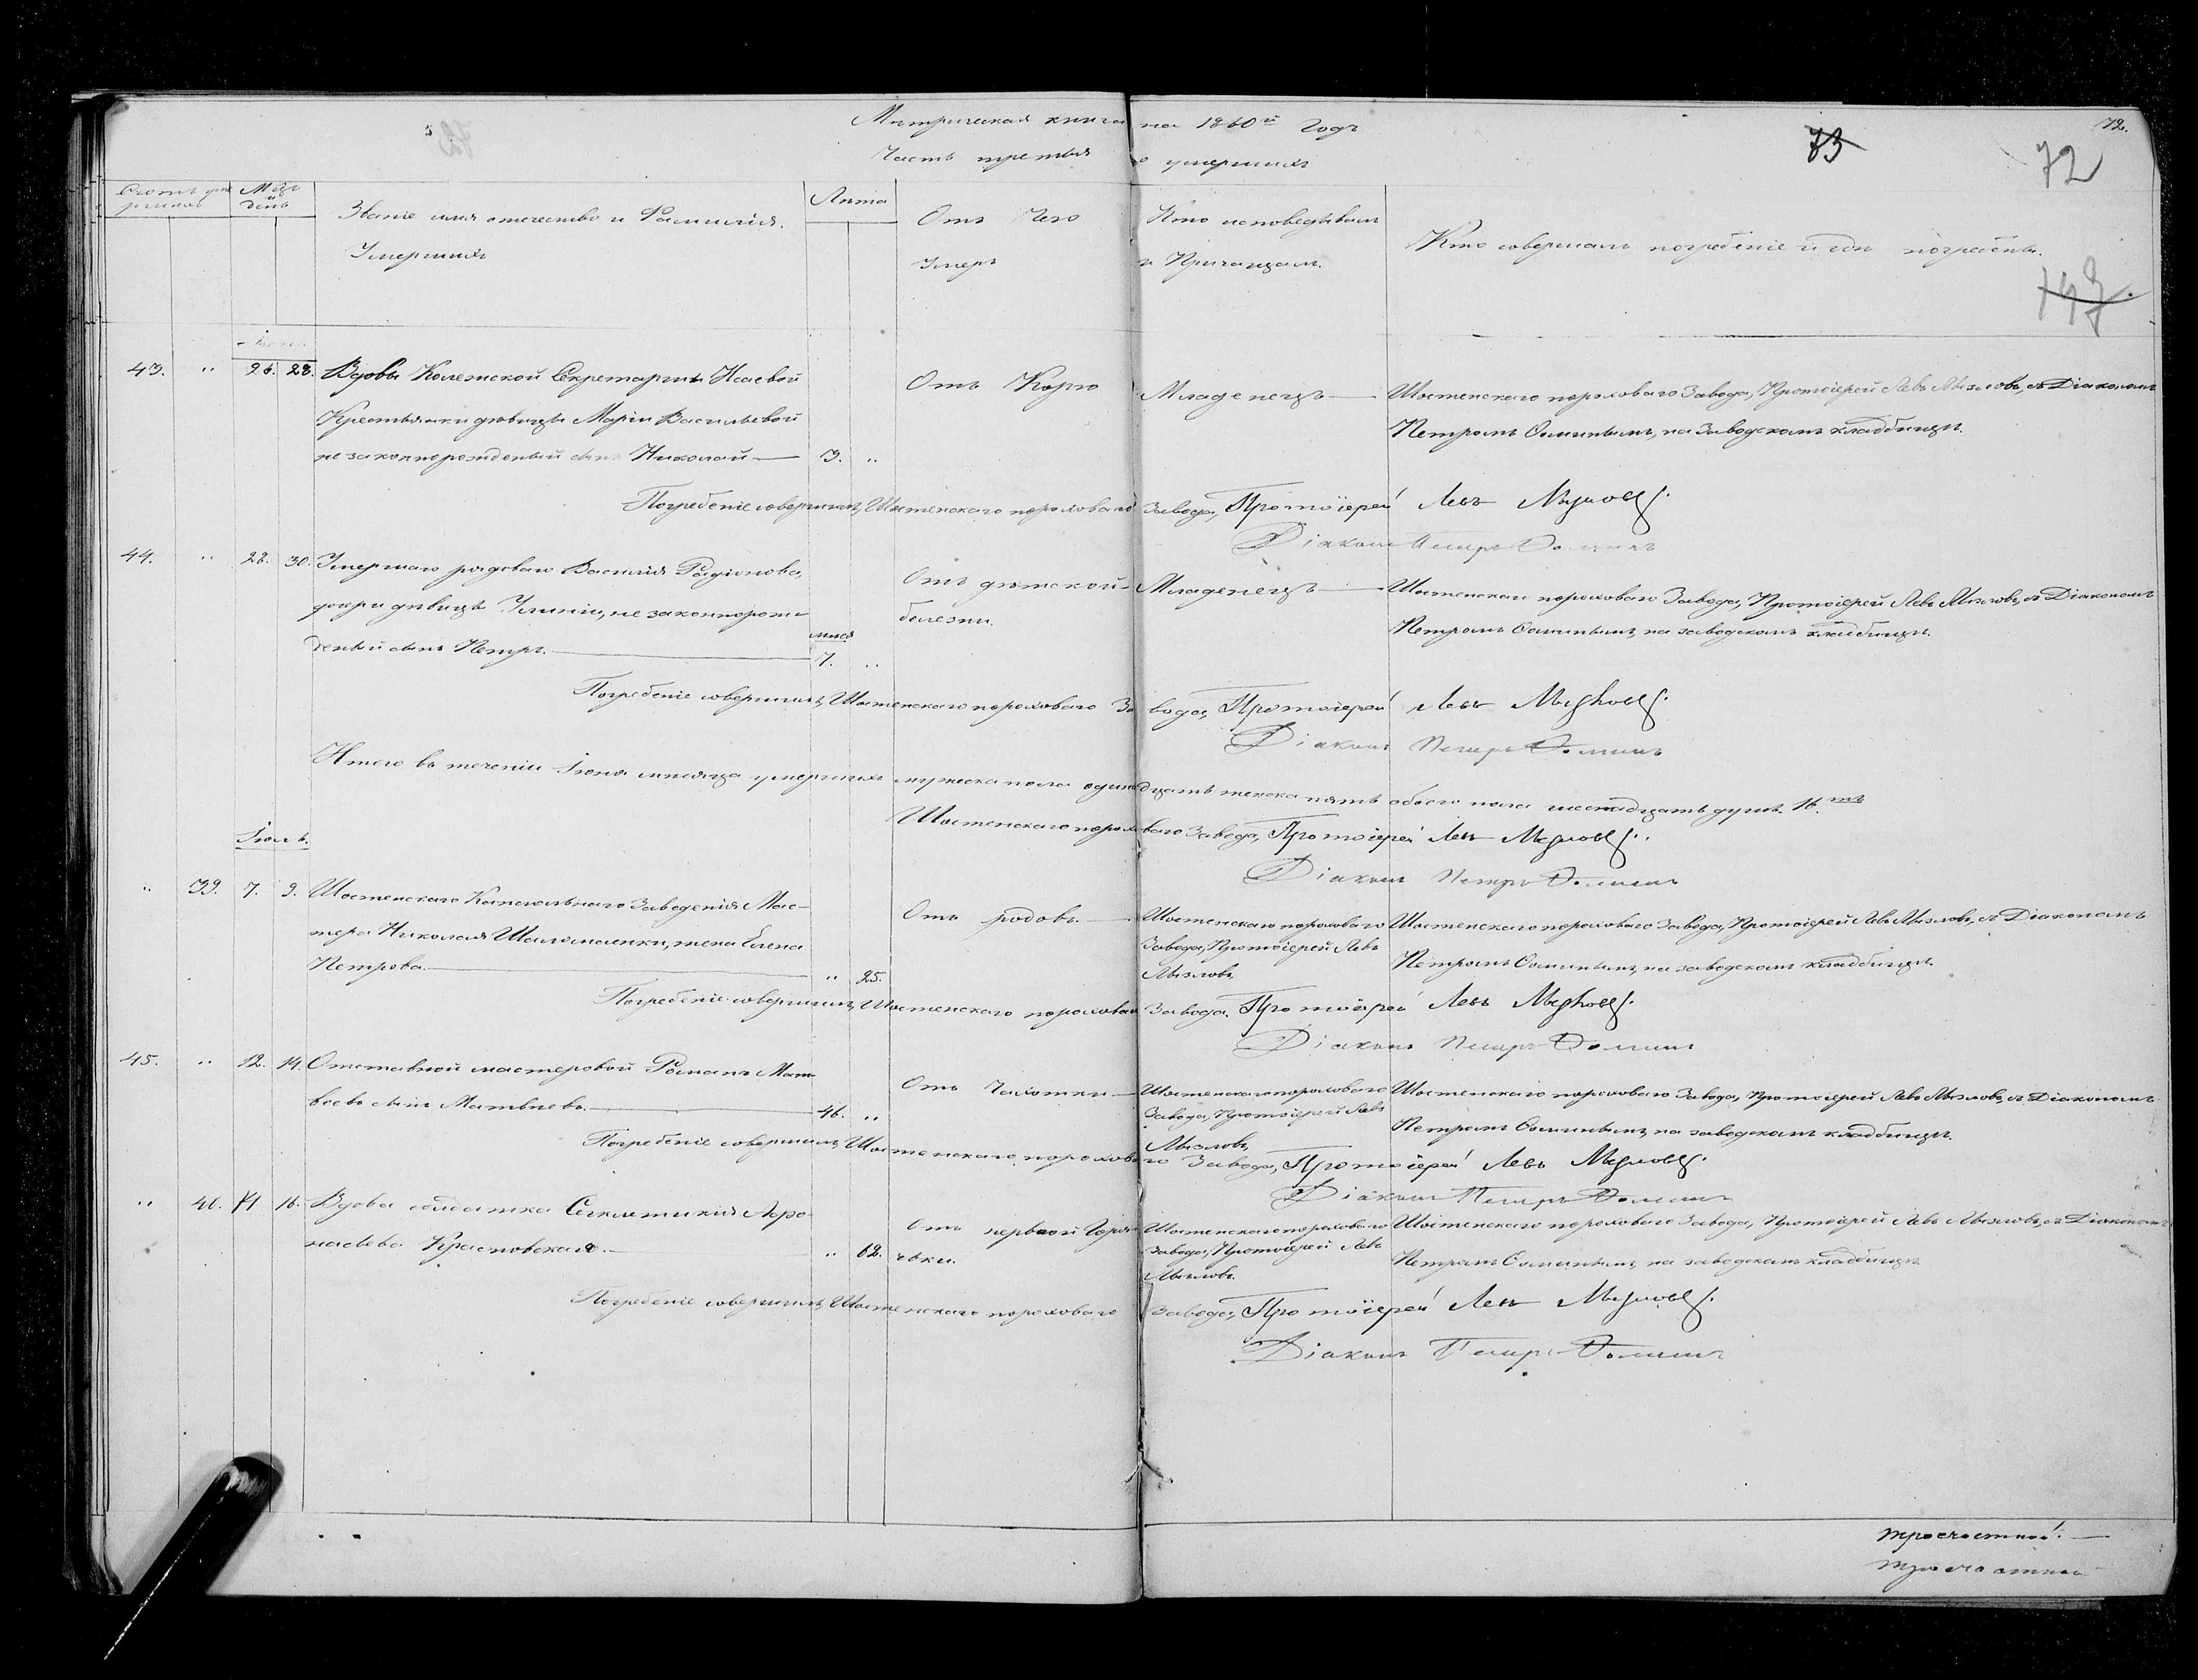 Метрическая книга на 1860й Годъ
Часть третья о умершихъ
73
72.
72
Счетъ умершихъ
Мцъ и день
Званіе имя отечество и Фамилія. Умершихъ
Лѣта
Отъ Чего Умеръ
Кто исповедывалъ и Причащалъ.
Кто совершалъ погребеніе и гдѣ погребены.
43. " 26. 28. Вдовы Колежской Секретарши Исаевой
Крестьянки дѣвицы Маріи Васильевой
не законнорожденый сынъ Николай — 3. "
Отъ Корю
Младенецъ —
Шостенскаго пороховаго Завода, Протоіерей Левъ Мызловъ, съ Діакономъ
Петромъ Ѳоминымъ, на Заводскомъ кладбищѣ.
Погребеніе совершилъ, Шостенскаго пороховаго Завода, Протоіерей Левъ Мызловъ.
Діаконъ Петръ Ѳоминъ
44. " 28. 30. Умершаго рядоваго Василія Радіонова,
дочри дѣвицы Улиніи, не законнорож-
деный сынъ Петръ. — мцсъ 7. "
Отъ дѣтской болезни.
Младенецъ —
Шостенскаго пороховаго Завода, Протоіерей Левъ Мызловъ, съ Діакономъ
Петромъ Ѳоминымъ, на заводскомъ кладбищѣ.
Погребеніе совершилъ, Шостенскаго пороховаго Завода, Протоіерей Левъ Мызловъ.
Діаконъ Петръ Ѳоминъ
Итого въ теченіи Іюня мѣсяца умершихъ мужеска пола одинадцать женска пять обоего пола шеснадцать душъ. 16.ть
Шостенскаго пороховаго Завода, Протоіерей Левъ Мызловъ.
Діаконъ Петръ Ѳоминъ
Іюль.
" 39. 7. 9. Шостенскаго Капсюльнаго Заведенія Мас-
тера Николая Шаломаенки, жена Елена
Петрова. — " 25.
Отъ родовъ. —
Шостенскаго пороховаго
Завода, Протоіерей Левъ
Мызловъ.
Шостенскаго пороховаго Завода, Протоіерей Левъ Мызловъ, съ Діакономъ
Петромъ Ѳоминымъ, на заводскомъ кладбищѣ.
Погребеніе совершилъ, Шостенскаго пороховаго Завода. Протоіерей Левъ Мызловъ.
Діаконъ Петръ Ѳоминъ
45. " 12. 14. Отставной мастеровой Романъ Мат-
веевъ сынъ Матвѣевъ. — 46. "
Отъ Чахотки —
Шостенскаго пороховаго
Завода, Протоіерей Левъ
Мызловъ,
Шостенскаго пороховаго Завода, Протоіерей Левъ Мызловъ, съ Діакономъ
Петромъ Ѳоминымъ, на заводскомъ кладбищѣ.
Погребеніе совершилъ, Шостенскаго пороховаго Завода, Протоіерей Левъ Мызловъ.
Діаконъ Петръ Ѳоминъ
" 40. 14 16. Вдова солдатка Секлетикія
Красновская. — " 62.
Отъ нервной Горячки.
Шостенскаго пороховаго
Завода, Протоіерей Левъ
Мызловъ.
Шостенскаго пороховаго Завода, Протоіерей Левъ Мызловъ, съ Діакономъ
Петромъ Ѳоминымъ, на заводскомъ кладбищѣ.
Погребеніе совершилъ, Шостенскаго пороховаго Завода, Протоіерей Левъ Мызловъ.
Діаконъ Петръ Ѳоминъ